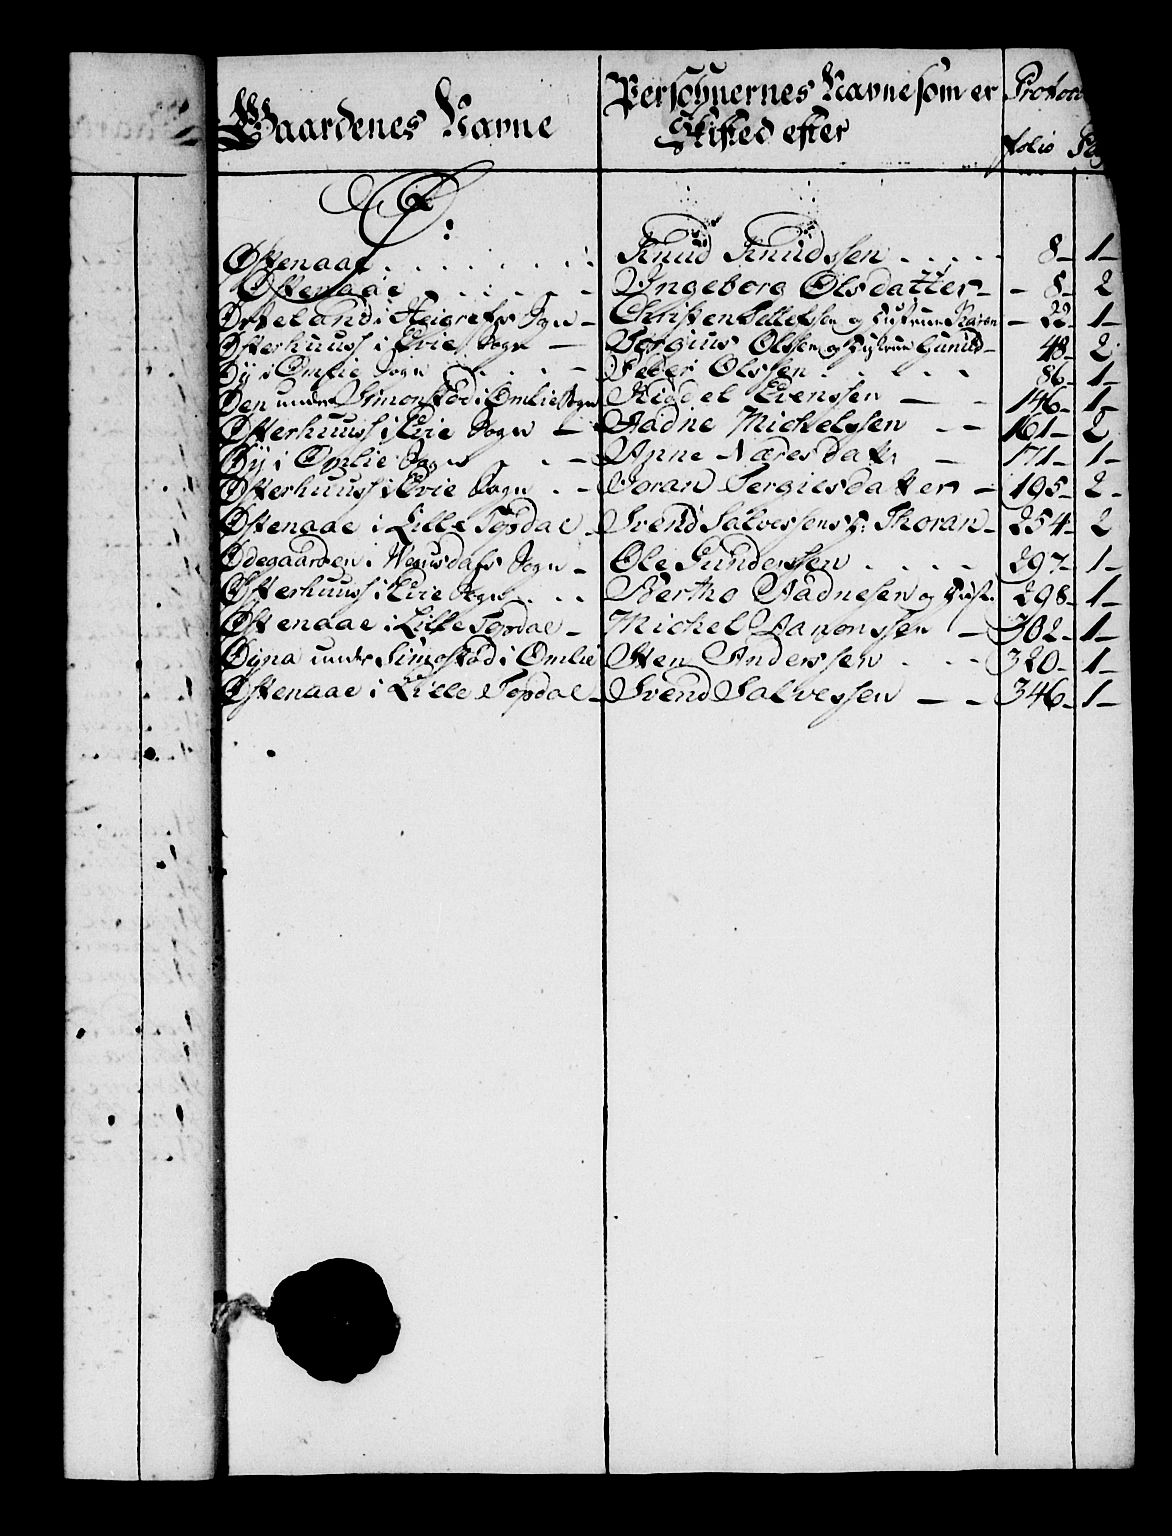 Gaardenes Navne Persohnernes Navne som er Protoco
Skifted efter folio Pag
Ø:
Østenaae Knud Knudssen 8 1
Østenaae Ingeborg Olsdatter 8 2
i Heigrefs Sogn Christen og Hustrue Karen 22 1
Østerhuus i Evie Sogn Tergius Olssen og Hustrue Gunild 48 2
Øÿ i Omlie Sogn Peder Olssen 86 1
Øen under Simonstad i Omlie Sogn Kiddel Evenssen 146 1
Østerhuus i Evie Sogn Aadne Michelssen 161 2
Øÿ i Omlie Sogn Anne Næresdatt: 171 1
Østerhuus i Evie Sogn Joran Tergiusdatter 195 2
Østenaae i Lille Topdal Svend Salvessens H: Thoran 254 2
Ødegaarden i Wegusdals Sogn Ole Gunderssen 297 1
Østerhuus i Evie Sogn Bertho Aadnesen og Hust: 298 1
Østenaae i Lille Topdal Michel Aanonssen 302 1
Øyna under Simostad i Omlie Sten Anderssen 320 1
Østenaae i Lille Topdal Svend Salvessen 346 1